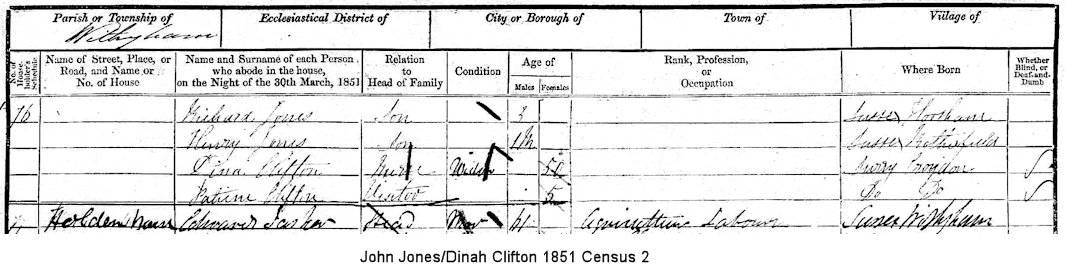 Parish or Township of Ecclesiastical District of City or Borough of Town of Village of
Withyham
No. of House-holder's Schedule Name of Street, Place, or Road, and Name or No. of House Name and Surname of each Person who abode in the house, on the Night of the 30th March, 1851 Relation to Head of Family Condition Age of Males Females Rank, Profession, or Occupation Where Born Whether Blind, or Deaf-and-Dumb
76 Richard Jones Son 3 Sussex Horsham
Henry Jones Son 1 M Sussex Rotherfield
Dina Clifton Nurse Widow 50 Surry Croydon
Clifton Visitor 5 Do Do
Edward Head Mar 61 Agricultural Labourer Sussex Withyham
John Jones/Dinah Clifton 1851 Census 2